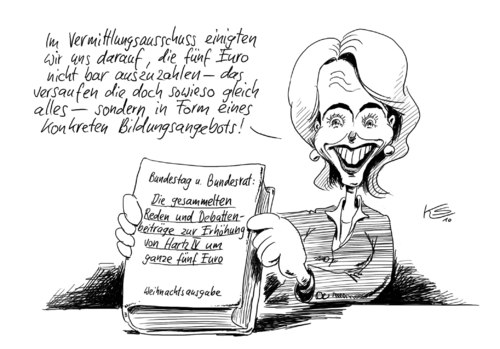 Im Vermittlungsausschuss einigten
wir uns darauf, die fünf Euro
nicht bar auszuzahlen – das
versaufen die doch sowieso gleich
alles – sondern in Form eines
konkreten Bildungsangebots!
Bundestag u. Bundesrat:
Die gesammelten
Reden und Debatten-
beiträge zur Erhöhung
von Hartz IV um
ganze fünf Euro
Weihnachtsausgabe
10